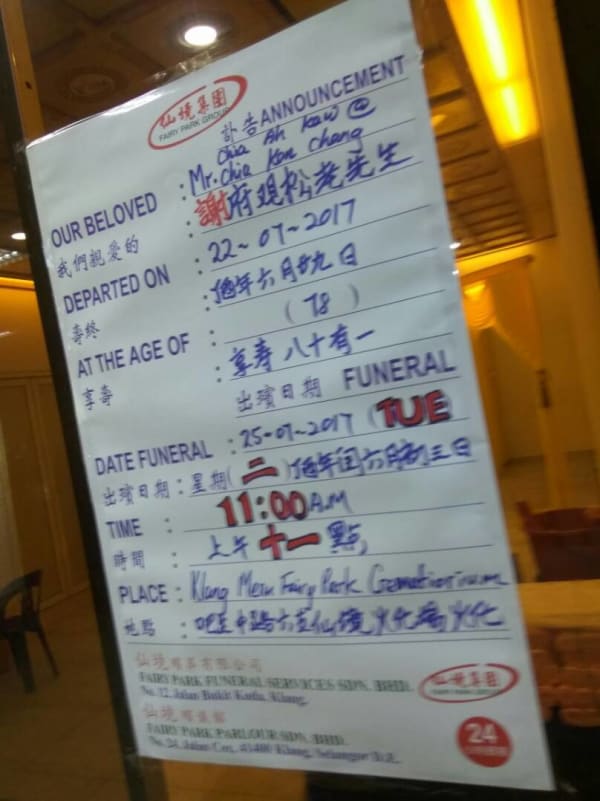 仙境集團
FAIRY PARK GROUP
訃告 ANNOUNCEMENT
Chia Ah Kaw @
OUR BELOVED : Mr. Chia Kon Chang
我們親愛的 謝府观松老先生
DEPARTED ON : 22-07-2017
壽終 : 酉年六月廿九日
AT THE AGE OF : (78)
享壽 : 享寿八十有一
出殯日期 FUNERAL
DATE FUNERAL : 25-07-2017 (TUE)
出殯日期 : 星期(二)酉年闰六月初三日
TIME : 11:00 A.M
時間 : 上午十一點
PLACE : Klang Meru Fairy Park Crematiorium
地點 : 吧生中路六支仙境火化場火化
仙境殯葬有限公司
FAIRY PARK FUNERAL SERVICES SDN. BHD.
No. 12, Jalan Bukit Kuda, Klang.
仙境集團
FAIRY PARK GROUP
仙境殯儀館
FAIRY PARK PARLOUR SDN. BHD.
No. 24, Jalan Goh, 41400 Klang, Selangor D.E.
24